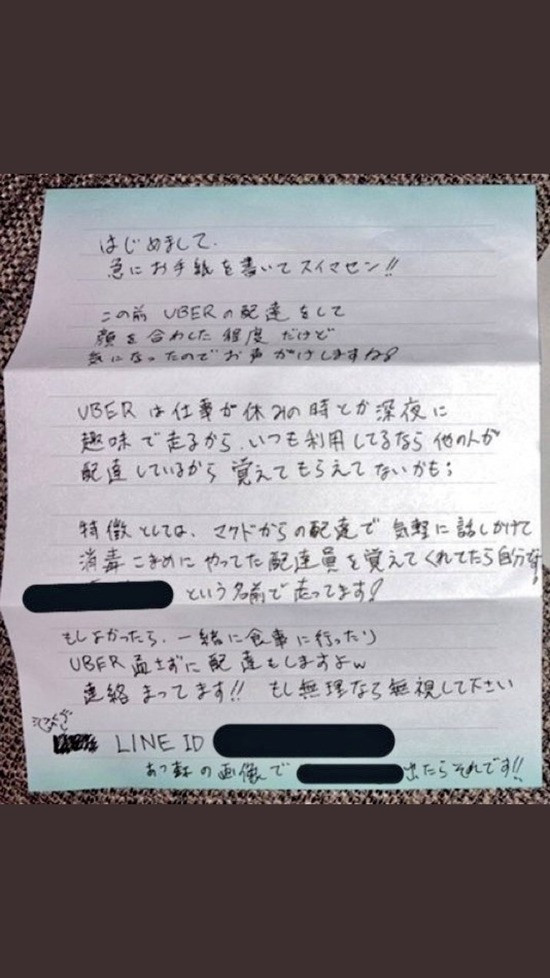 はじめまして、
急にお手紙を書いてスイマセン!!
この前 UBERの配達をして
顔を合わした程度だけど
気になったのでお声がけしますね!
UBERは仕事が休みの時とか深夜に
趣味で走るから、いつも利用してるなら他の人が
配達しているから覚えてもらえてないかも;
特徴としては、マクドからの配達で気軽に話しかけて
消毒こまめにやってた配達員を覚えてくれてたら自分です!
という名前で走ってます!
もしよかったら、一緒に食事に行ったり
UBER 通さずに配達もしますよw
連絡まってます!! もし無理なら無視して下さい
LINE ID
の画像で 出たらそれです!!